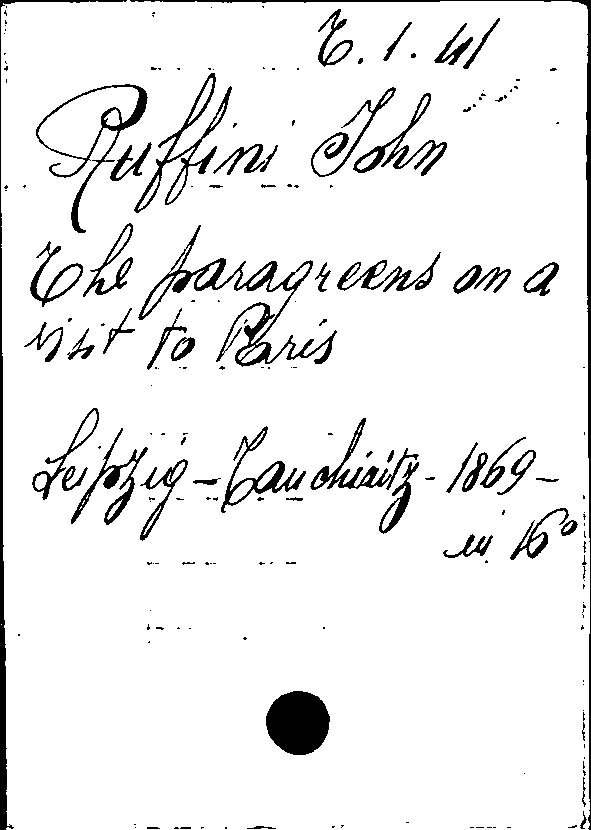 T. 1. 41
Ruffini John
The paragreens on a
visit to Paris
Leipzig - Tauchiaitz - 1869 -
in 16°